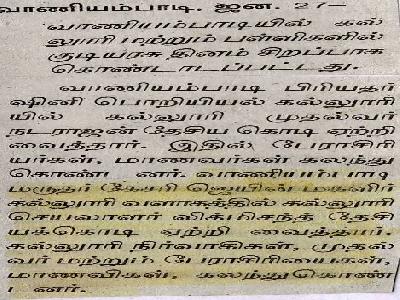 வாணியம்பாடி. ஜன. 27–
வாணியம்பாடியில் கல்
லூரி மற்றும் பள்ளிகளில்
குடியரசு தினம் சிறப்பாக
கொண்டாடப்பட்டது.
வாணியம்பாடி பிரியதர்
ஷினி பொறியியல் கல்லூரி
யில் கல்லூரி முதல்வர்
நடராஜன் தேசிய கொடி ஏற்றி
வைத்தார். இதில் பேராசிரி
யர்கள், மாணவர்கள் கலந்து
கொண்டனர். வாணியம்பாடி
மருதர் கேசரி ஜெயின் மகளிர்
கல்லூரி வளாகத்தில் கல்லூரி
செயலாளர் லிக்மிசந்த் தேசி
யக்கொடி ஏற்றி வைத்தார்.
கல்லூரி நிர்வாகிகள், முதல்
வர் மற்றும் பேராசிரியைகள்,
மாணவிகள், கலந்துகொண்
டனர்.